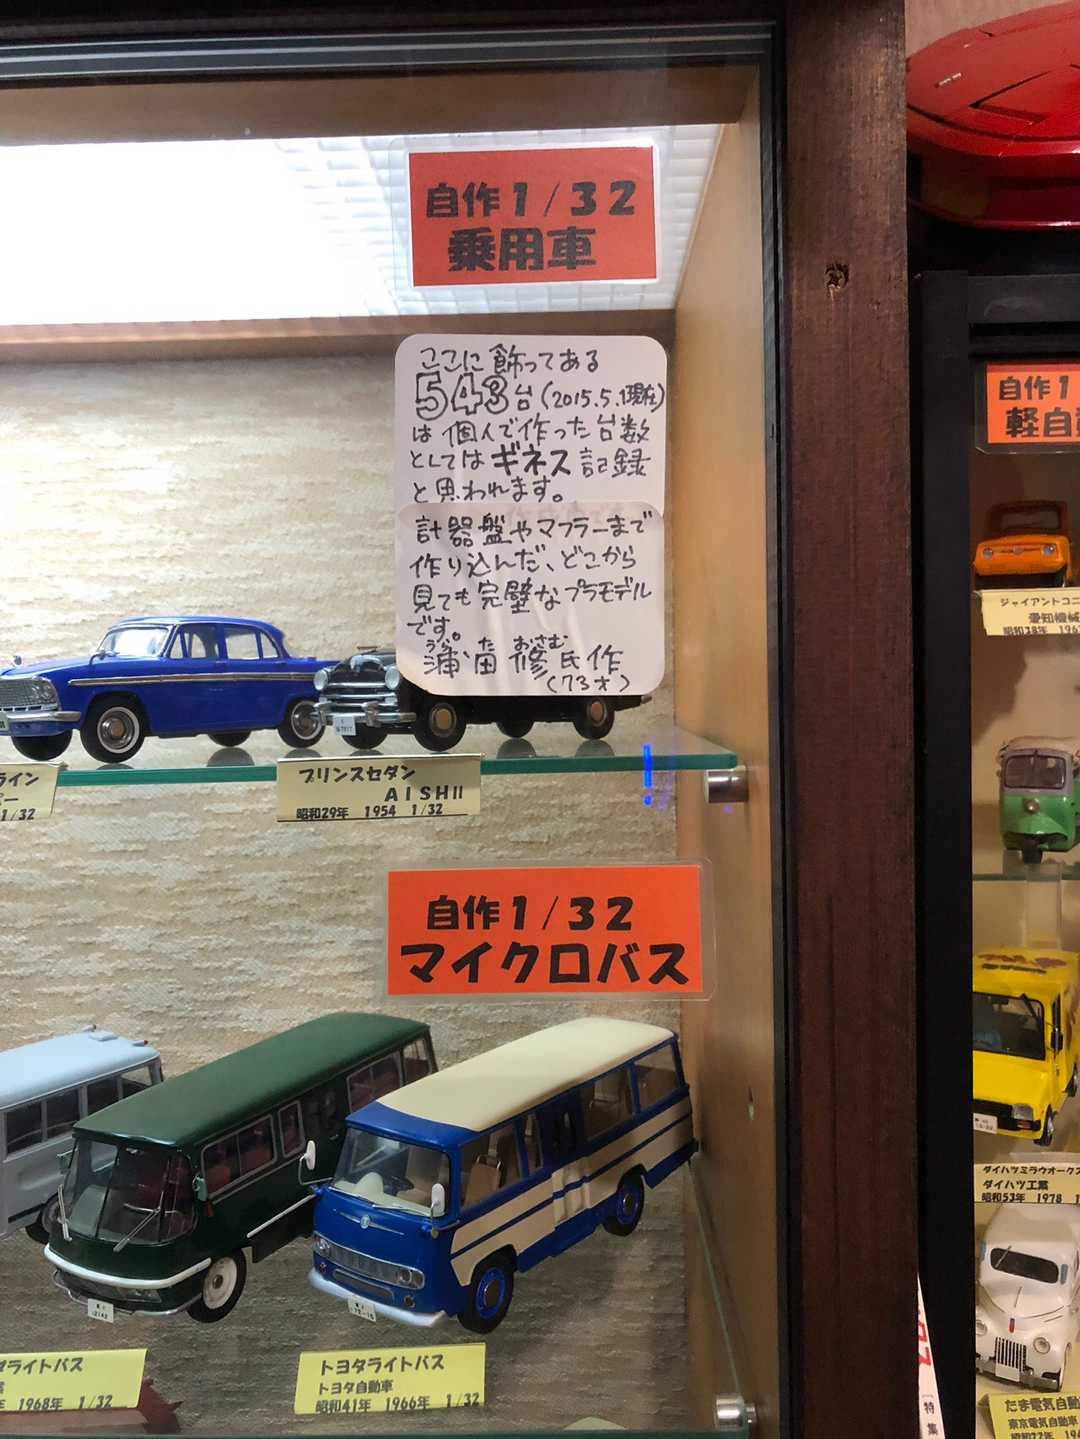 自作1/32
乗用車
ここに飾ってある
543台(2015.5.現在)
は個人で作った台数
としてはギネス記録
と思われます。
計器盤やマフラーまで
作り込んだ、どこから
見ても完璧なプラモデル
です。
浦田 修氏作
おさむ
(73才)
ライン
1/32
プリンスセダン
AISHII
昭和29年 1954 1/32
自作1/32
マイクロバス
ライトバス
1968年 1/32
トヨタライトバス
トヨタ自動車
昭和41年 1966年 1/32
自作1
軽自
ジャイアントコニ
愛知機械
昭和38年 196
ダイハツミラウオークス
ダイハツ工業
昭和53年 1978 1
たま電気自動
東京電気自動車
昭和22年 194
特集